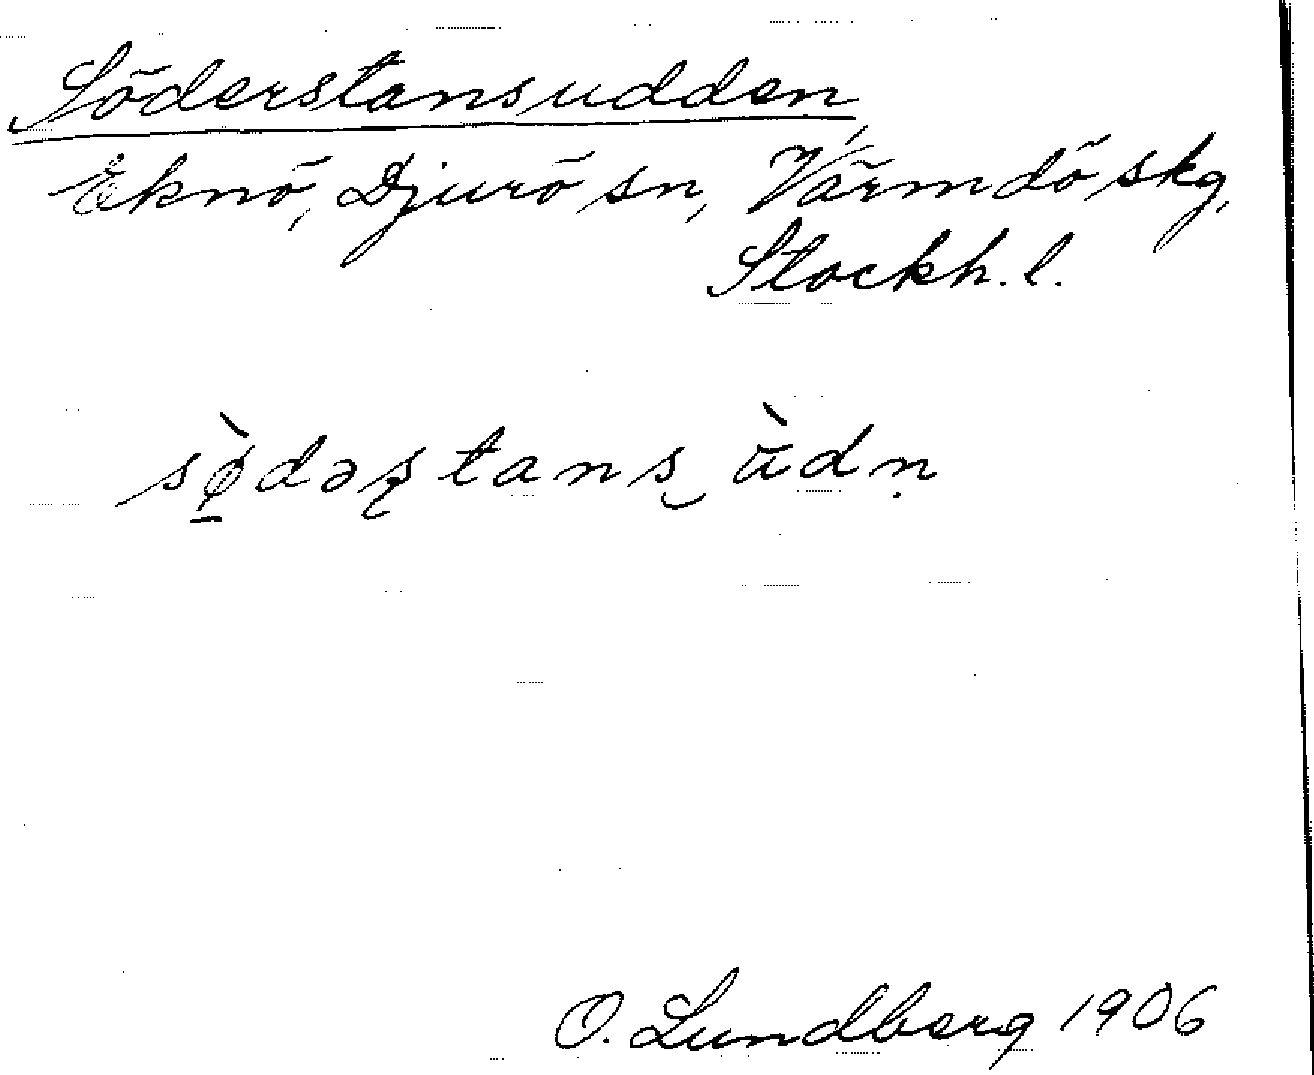 Söderstansudden
Eknö, Djurö sn, Värmdö skg,
Stockh. l.
sø̠̀dəʂtans͜ ū̀dṇ
O. Lundberg 1906